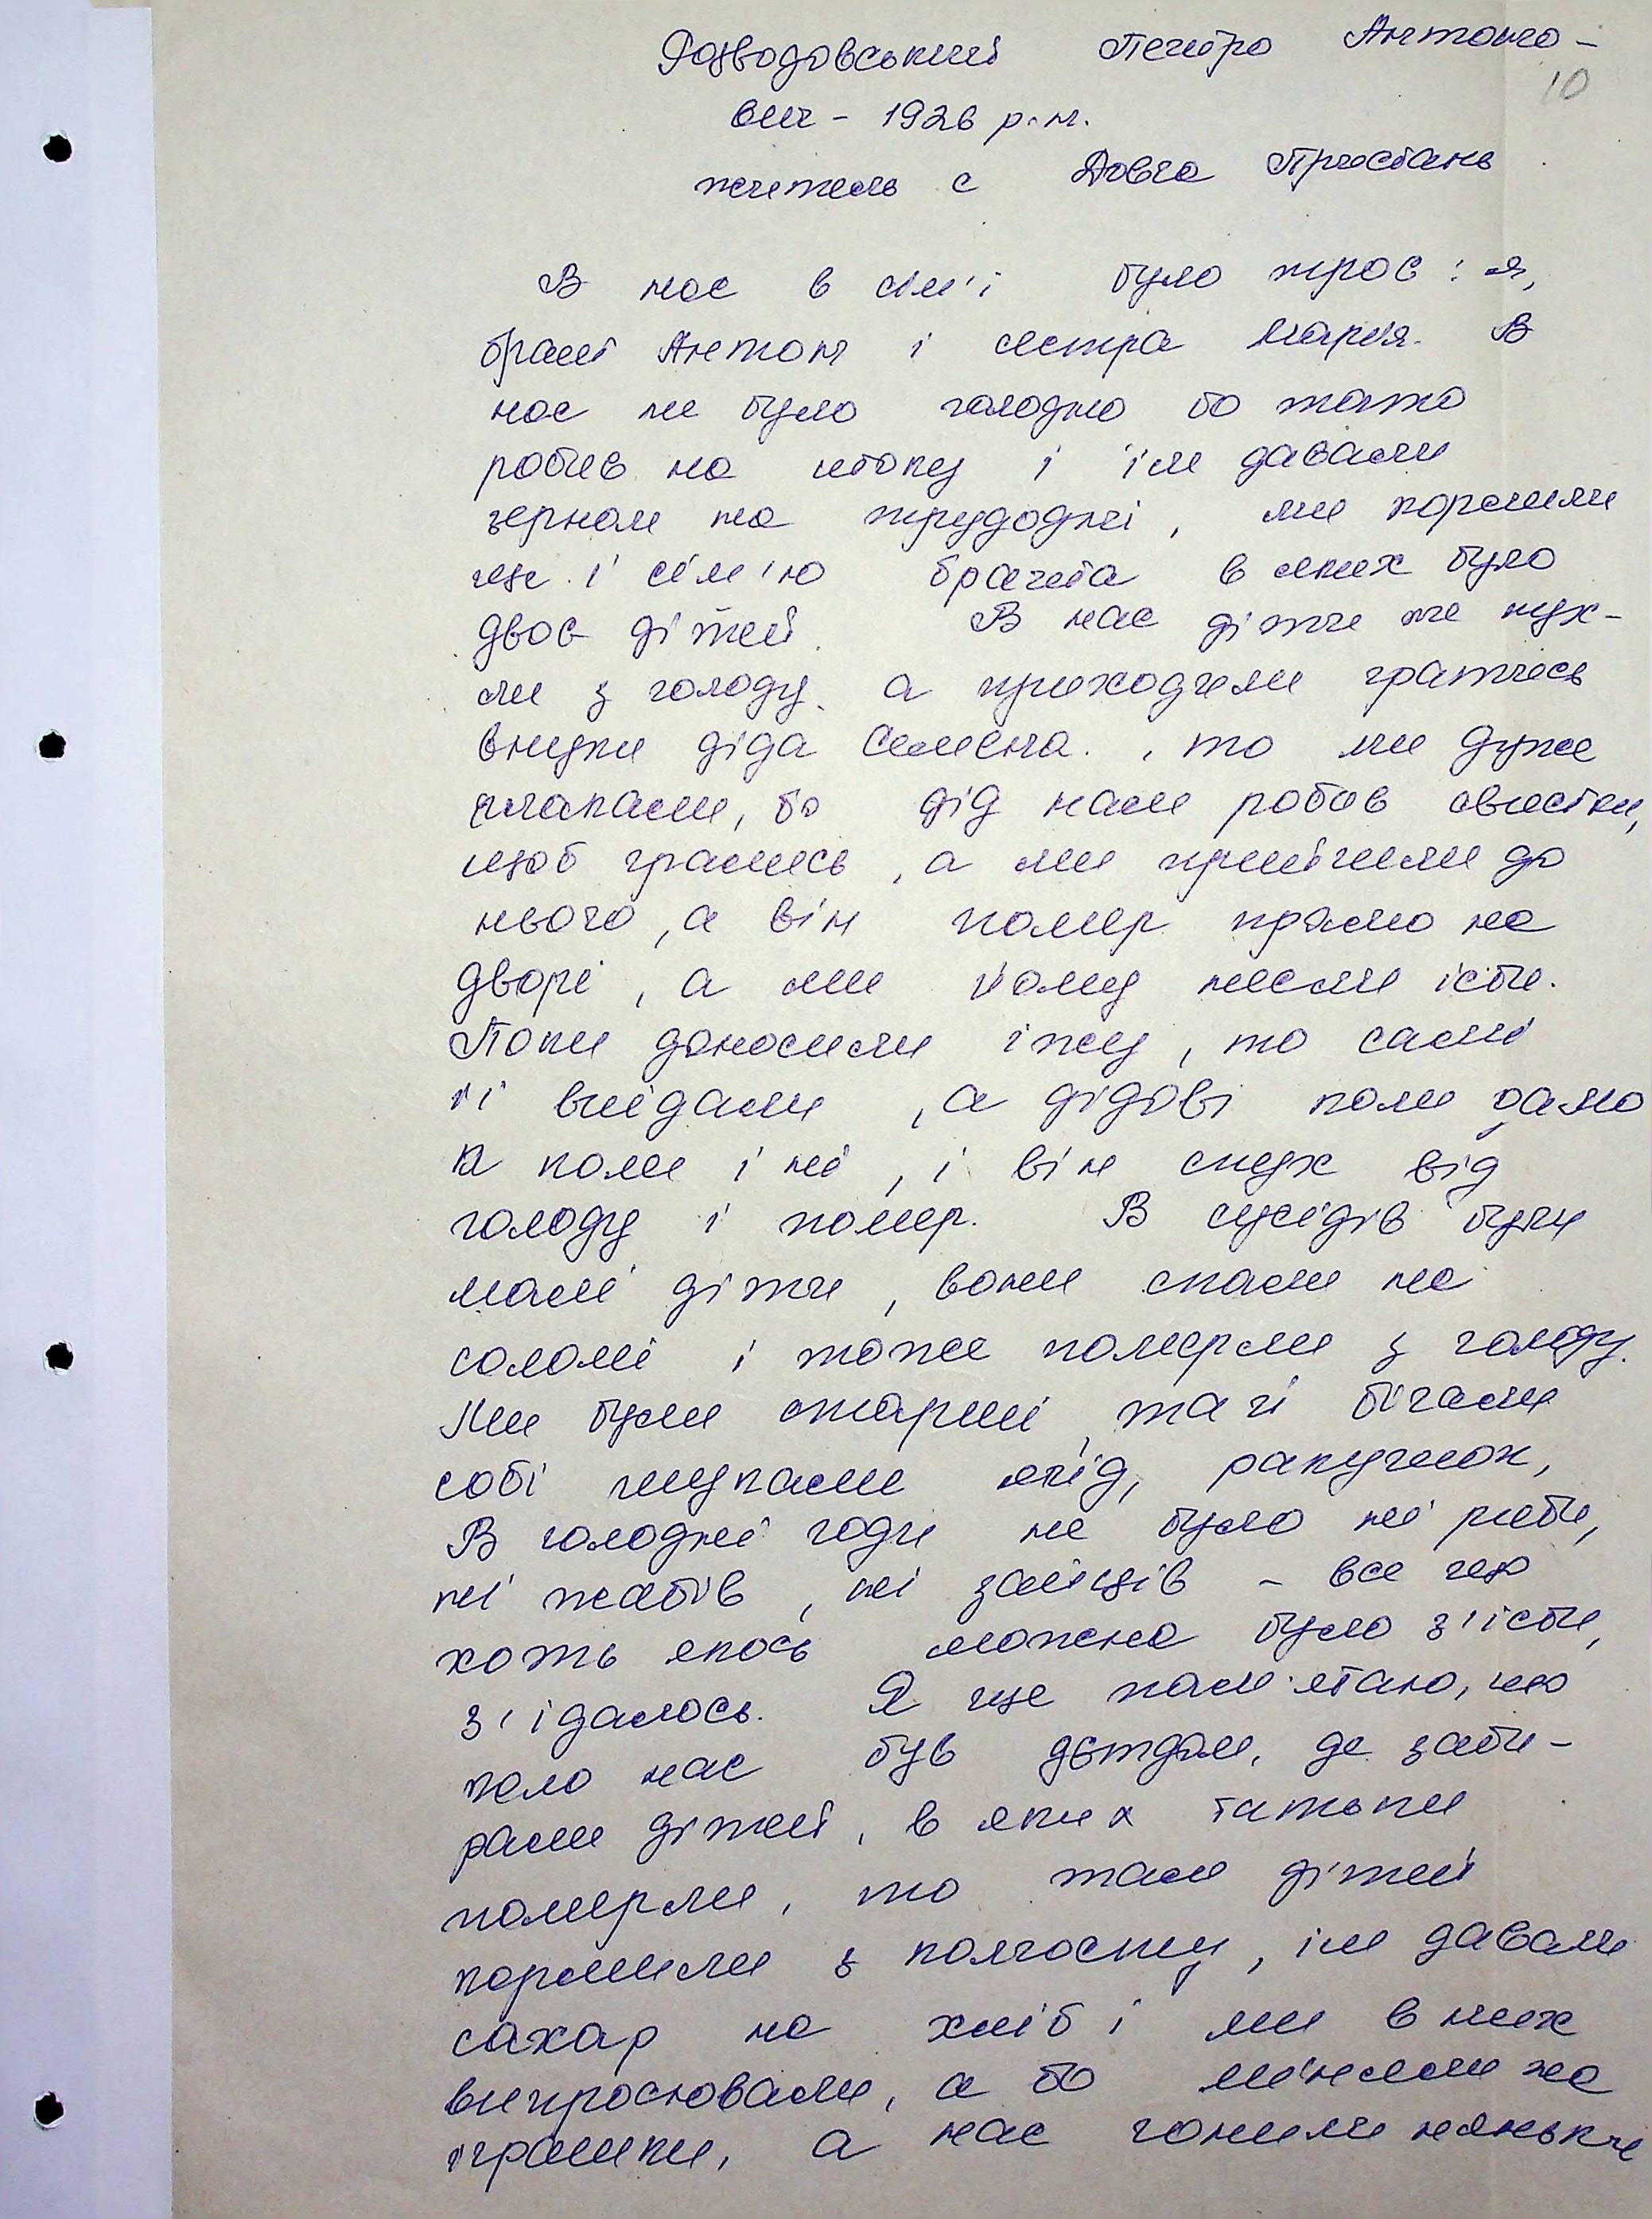 Розводовський Петро Антоно-
10
вич - 1926 р.н.
житель с Довга Пристань
В нас в сім'ї було троє: я,
брат Антон і сестра Марія. В
нас не було голодно бо тато
робив на току і їм давали
зерном на трудодні, ми кормили
ще і сім'ю брата в яких було
двоє дітей. В нас діти не пух-
ли з голоду, а приходили гратись
внуки діда Семена, то ми дуже
плакали, бо дід нам робив свистки,
щоб грались, а ми прийшли до
нього, а він помер прямо на
дворі, а ми йому несли їсти.
Поки доносили їжу, то самі
її виїдали, а дідові коли дамо
а коли і ні, і він спух від
голоду і помер. В сусідів були
малі діти, вони спали на
соломі і тоже померли з голоду.
Ми були старші, та й бігали
собі шукали ягід, ракушок,
В голодні годи не було ні риби,
ні жабів, ні зайців - все що
хоть якось можна було з'їсти,
з'їдалось. Я ще пам'ятаю, що
коло нас був детдом, де заби-
рали дітей, в яких батьки
померли, то там дітей
кормили з колгоспу, їм давали
сахар на хліб і ми в них
випросювали, а бо міняли на
іграшки, а нас гонили няньки